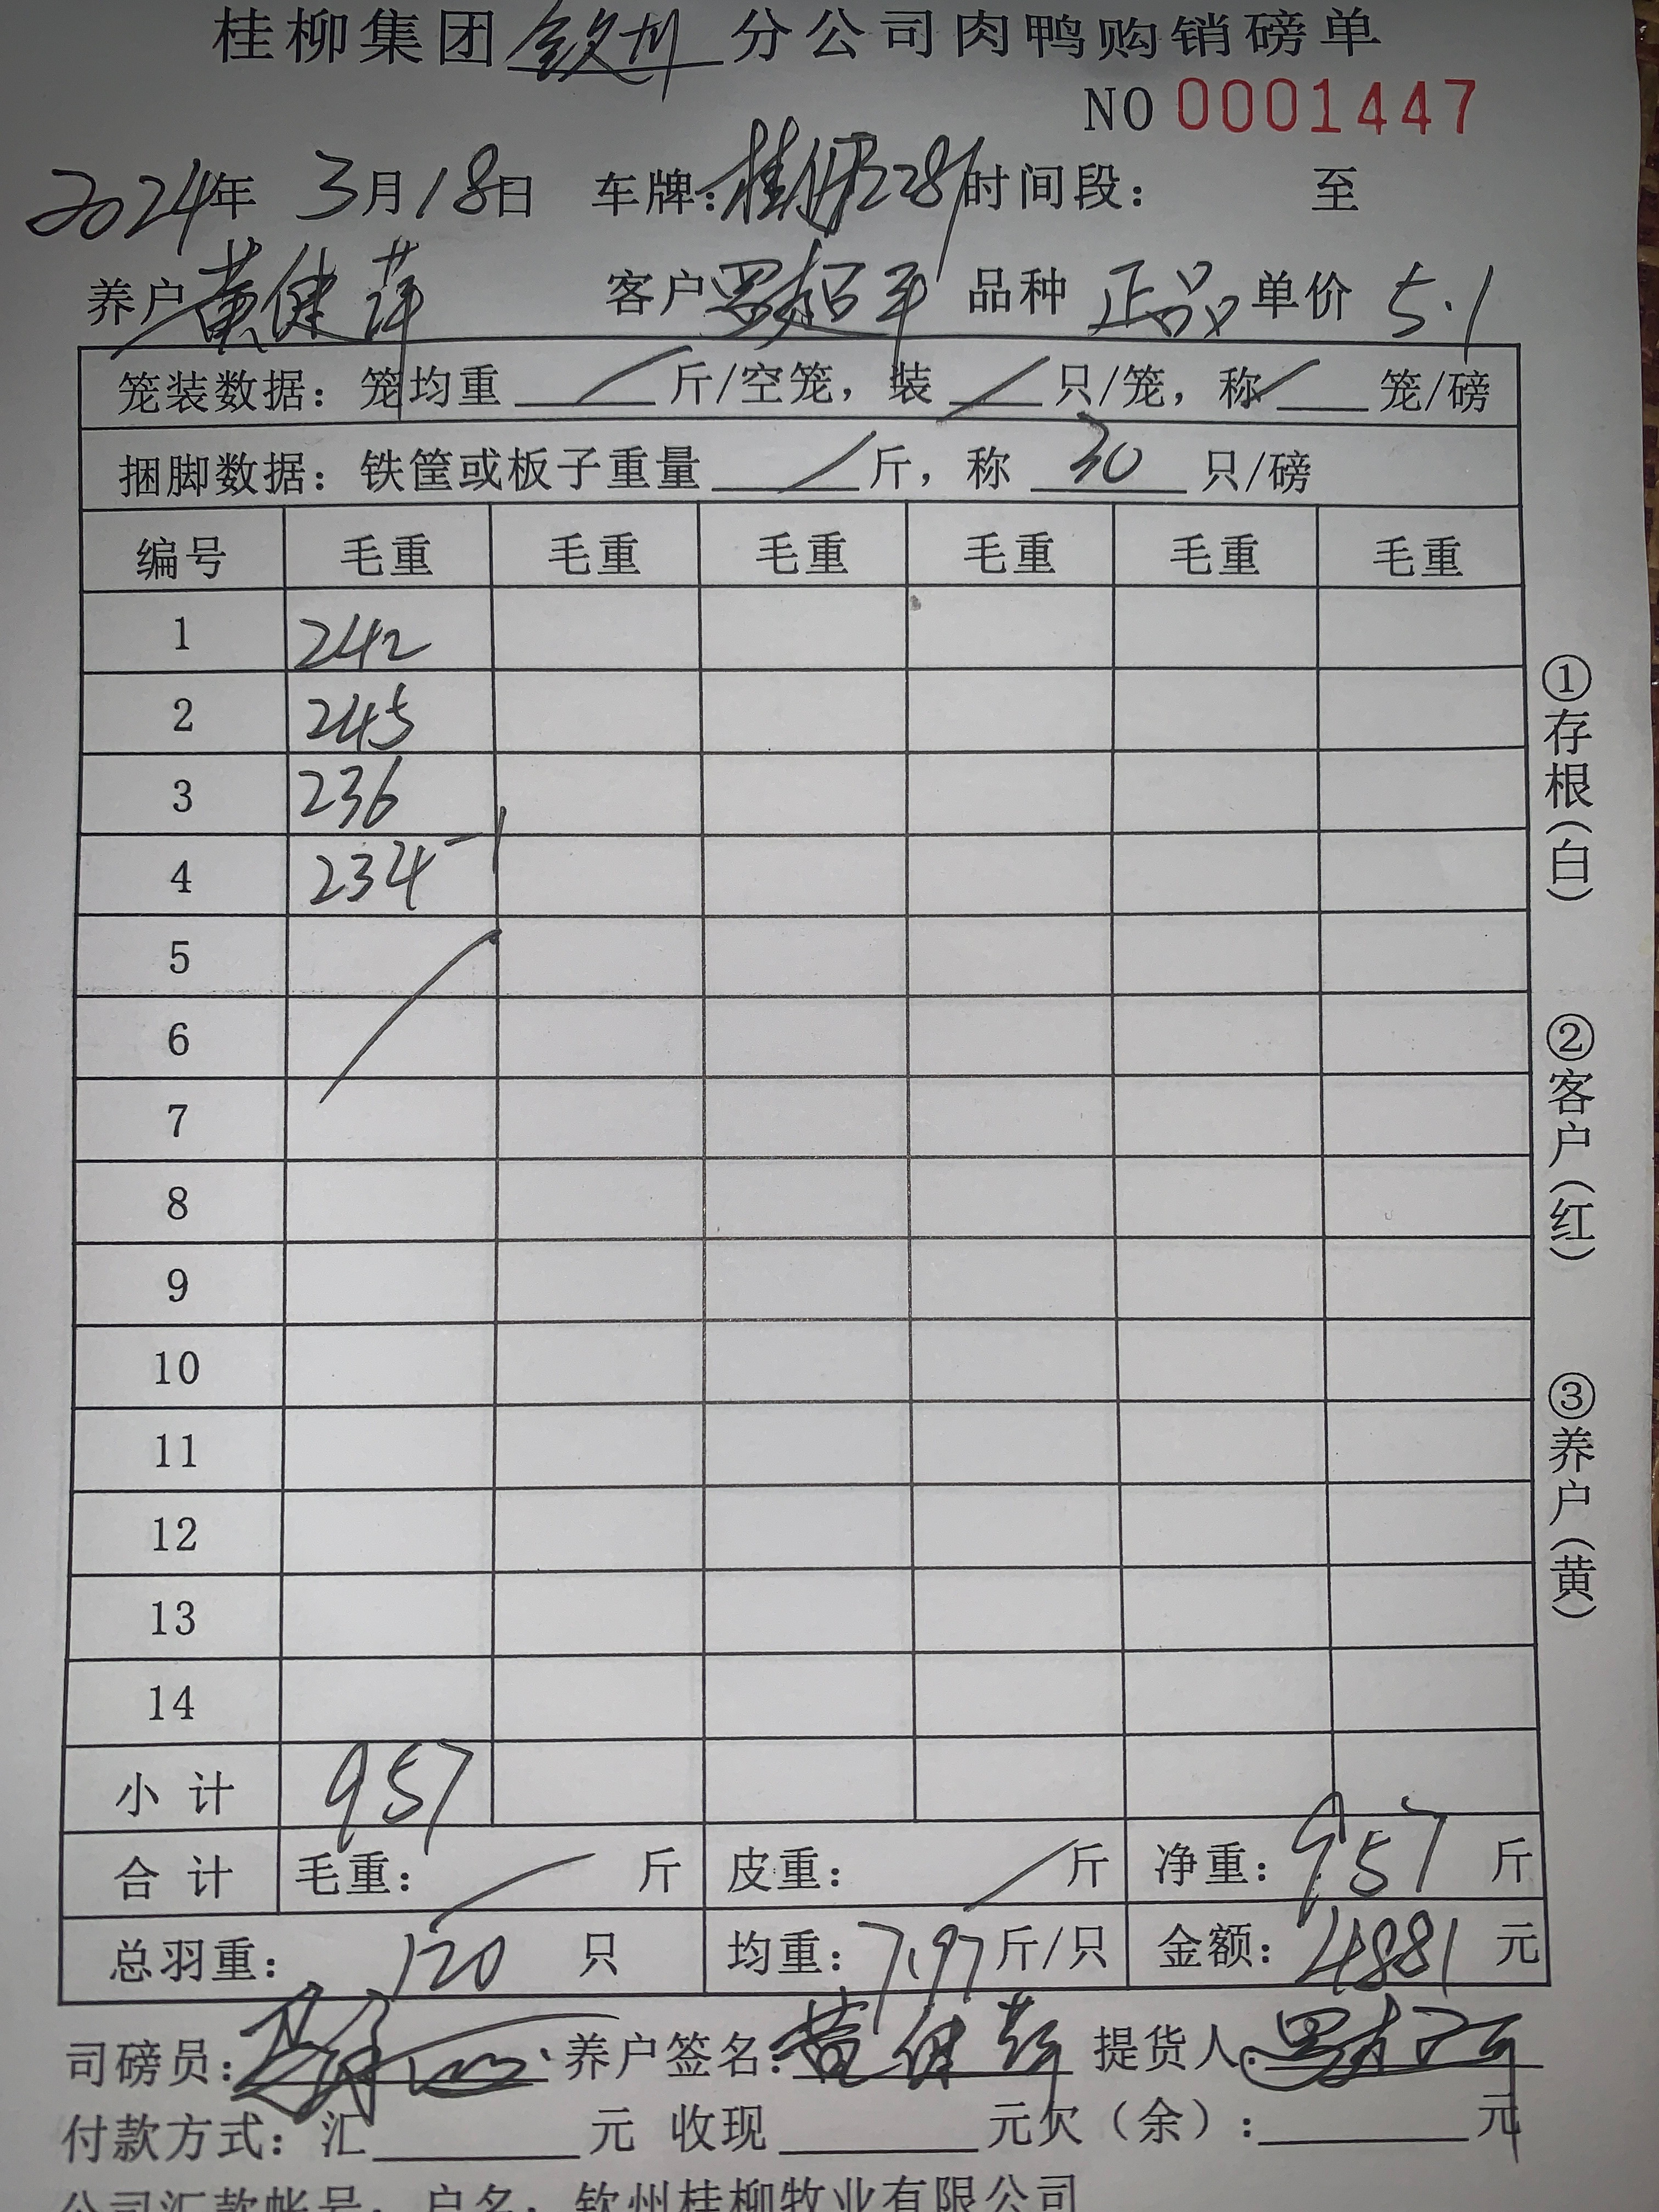 桂柳集团钦州分公司肉鸭购销磅单
NO 0001447
2024年 3月18日 车牌: 时间段: 至
养户黄健萍 客户罗超平 品种 正品 单价 5.1
笼装数据: 笼均重 / 斤/空笼, 装 / 只/笼, 称 / 笼/磅
捆脚数据: 铁筐或板子重量 / 斤, 称 30 只/磅
编号 毛重 毛重 毛重 毛重 毛重 毛重
1 242
2 245
3 236
4 234
5
6
7
8
9
10
11
12
13
14
小计 957
合计 毛重: / 斤 皮重: / 斤 净重: 957 斤
总羽重: 120 只 均重: 7.97 斤/只 金额: 4881 元
司磅员: 养户签名: 黄健萍 提货人:
付款方式: 汇 元 收现 元欠(余): 元
公司汇款帐号: 户名: 钦州桂柳牧业有限公司
①存根(白)
②客户(红)
③养户(黄)